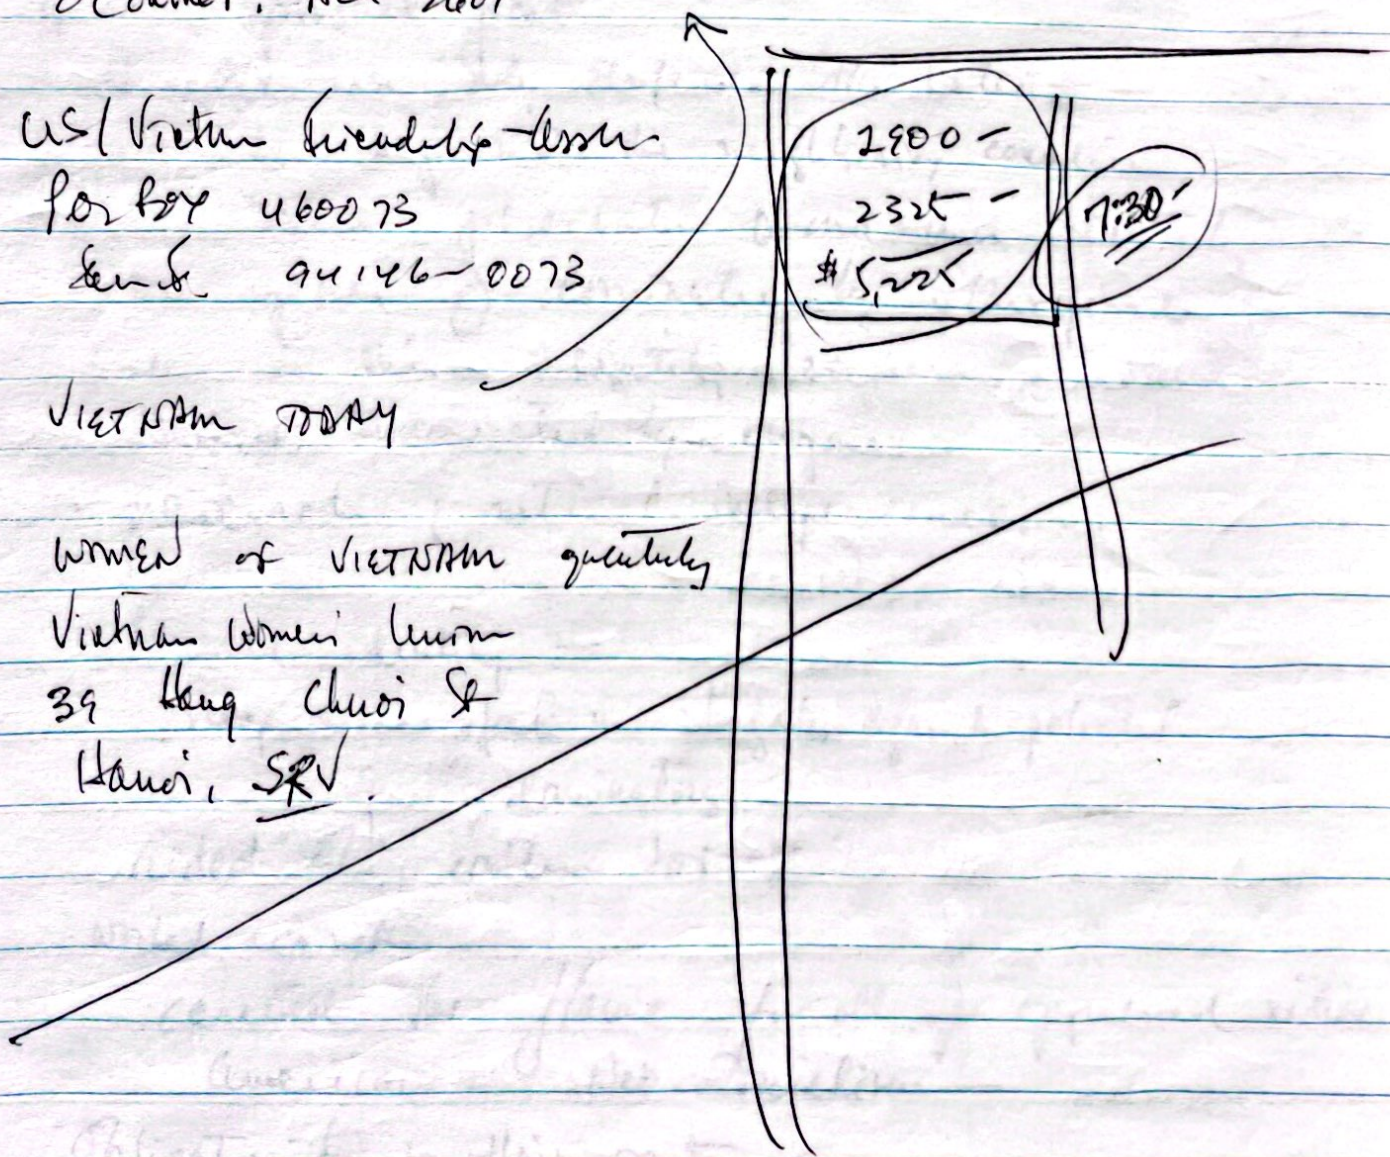 US/Vietnam Friendship Assn
P.O. Box 460073
94146-0073
VIETNAM TODAY
WOMEN of VIETNAM quarterly
Vietnam Women's Union
39 Hang Chuoi St
Hanoi, SRV.
2900-
2325-
$5,225
7:30-